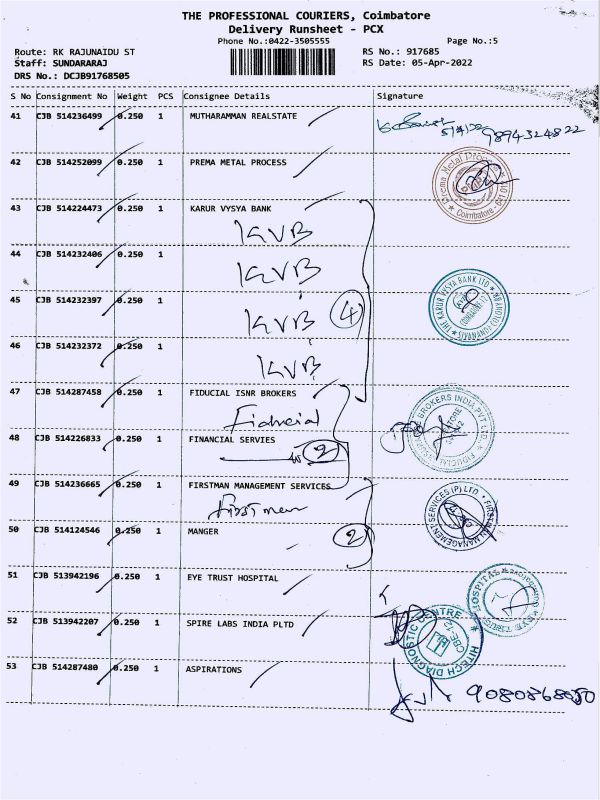 THE PROFESSIONAL COURIERS, Coimbatore
Delivery Runsheet - PCX
Phone No.:0422-3505555
Page No.:5
Route: RK RAJUNAIDU ST
RS No.: 917685
Staff: SUNDARARAJ
RS Date: 05-Apr-2022
DRS No.: DCJB91768505
S No Consignment No Weight PCS Consignee Details Signature
41 CJB 514236499 0.250 1 MUTHARAMMAN REALSTATE
9894324822
42 CJB 514252099 0.250 1 PREMA METAL PROCESS
Prema Metal Process
Coimbatore
43 CJB 514224473 0.250 1 KARUR VYSYA BANK
KVB
44 CJB 514232406 0.250 1
KVB
45 CJB 514232397 0.250 1
KVB
4
THE KARUR VYSYA BANK LTD
46 CJB 514232372 0.250 1
KVB
47 CJB 514287458 0.250 1 FIDUCIAL ISNR BROKERS
Fiducial
BROKERS INDIA PVT LTD
48 CJB 514226833 0.250 1 FINANCIAL SERVIES
2
49 CJB 514236665 0.250 1 FIRSTMAN MANAGEMENT SERVICES
Firstman
FIRSTMAN MANAGEMENT SERVICES (P) LTD
50 CJB 514124546 0.250 1 MANGER
2
51 CJB 513942196 0.250 1 EYE TRUST HOSPITAL
52 CJB 513942207 0.250 1 SPIRE LABS INDIA PLTD
HITECH DIAGNOSTIC CENTRE
53 CJB 514287480 0.250 1 ASPIRATIONS